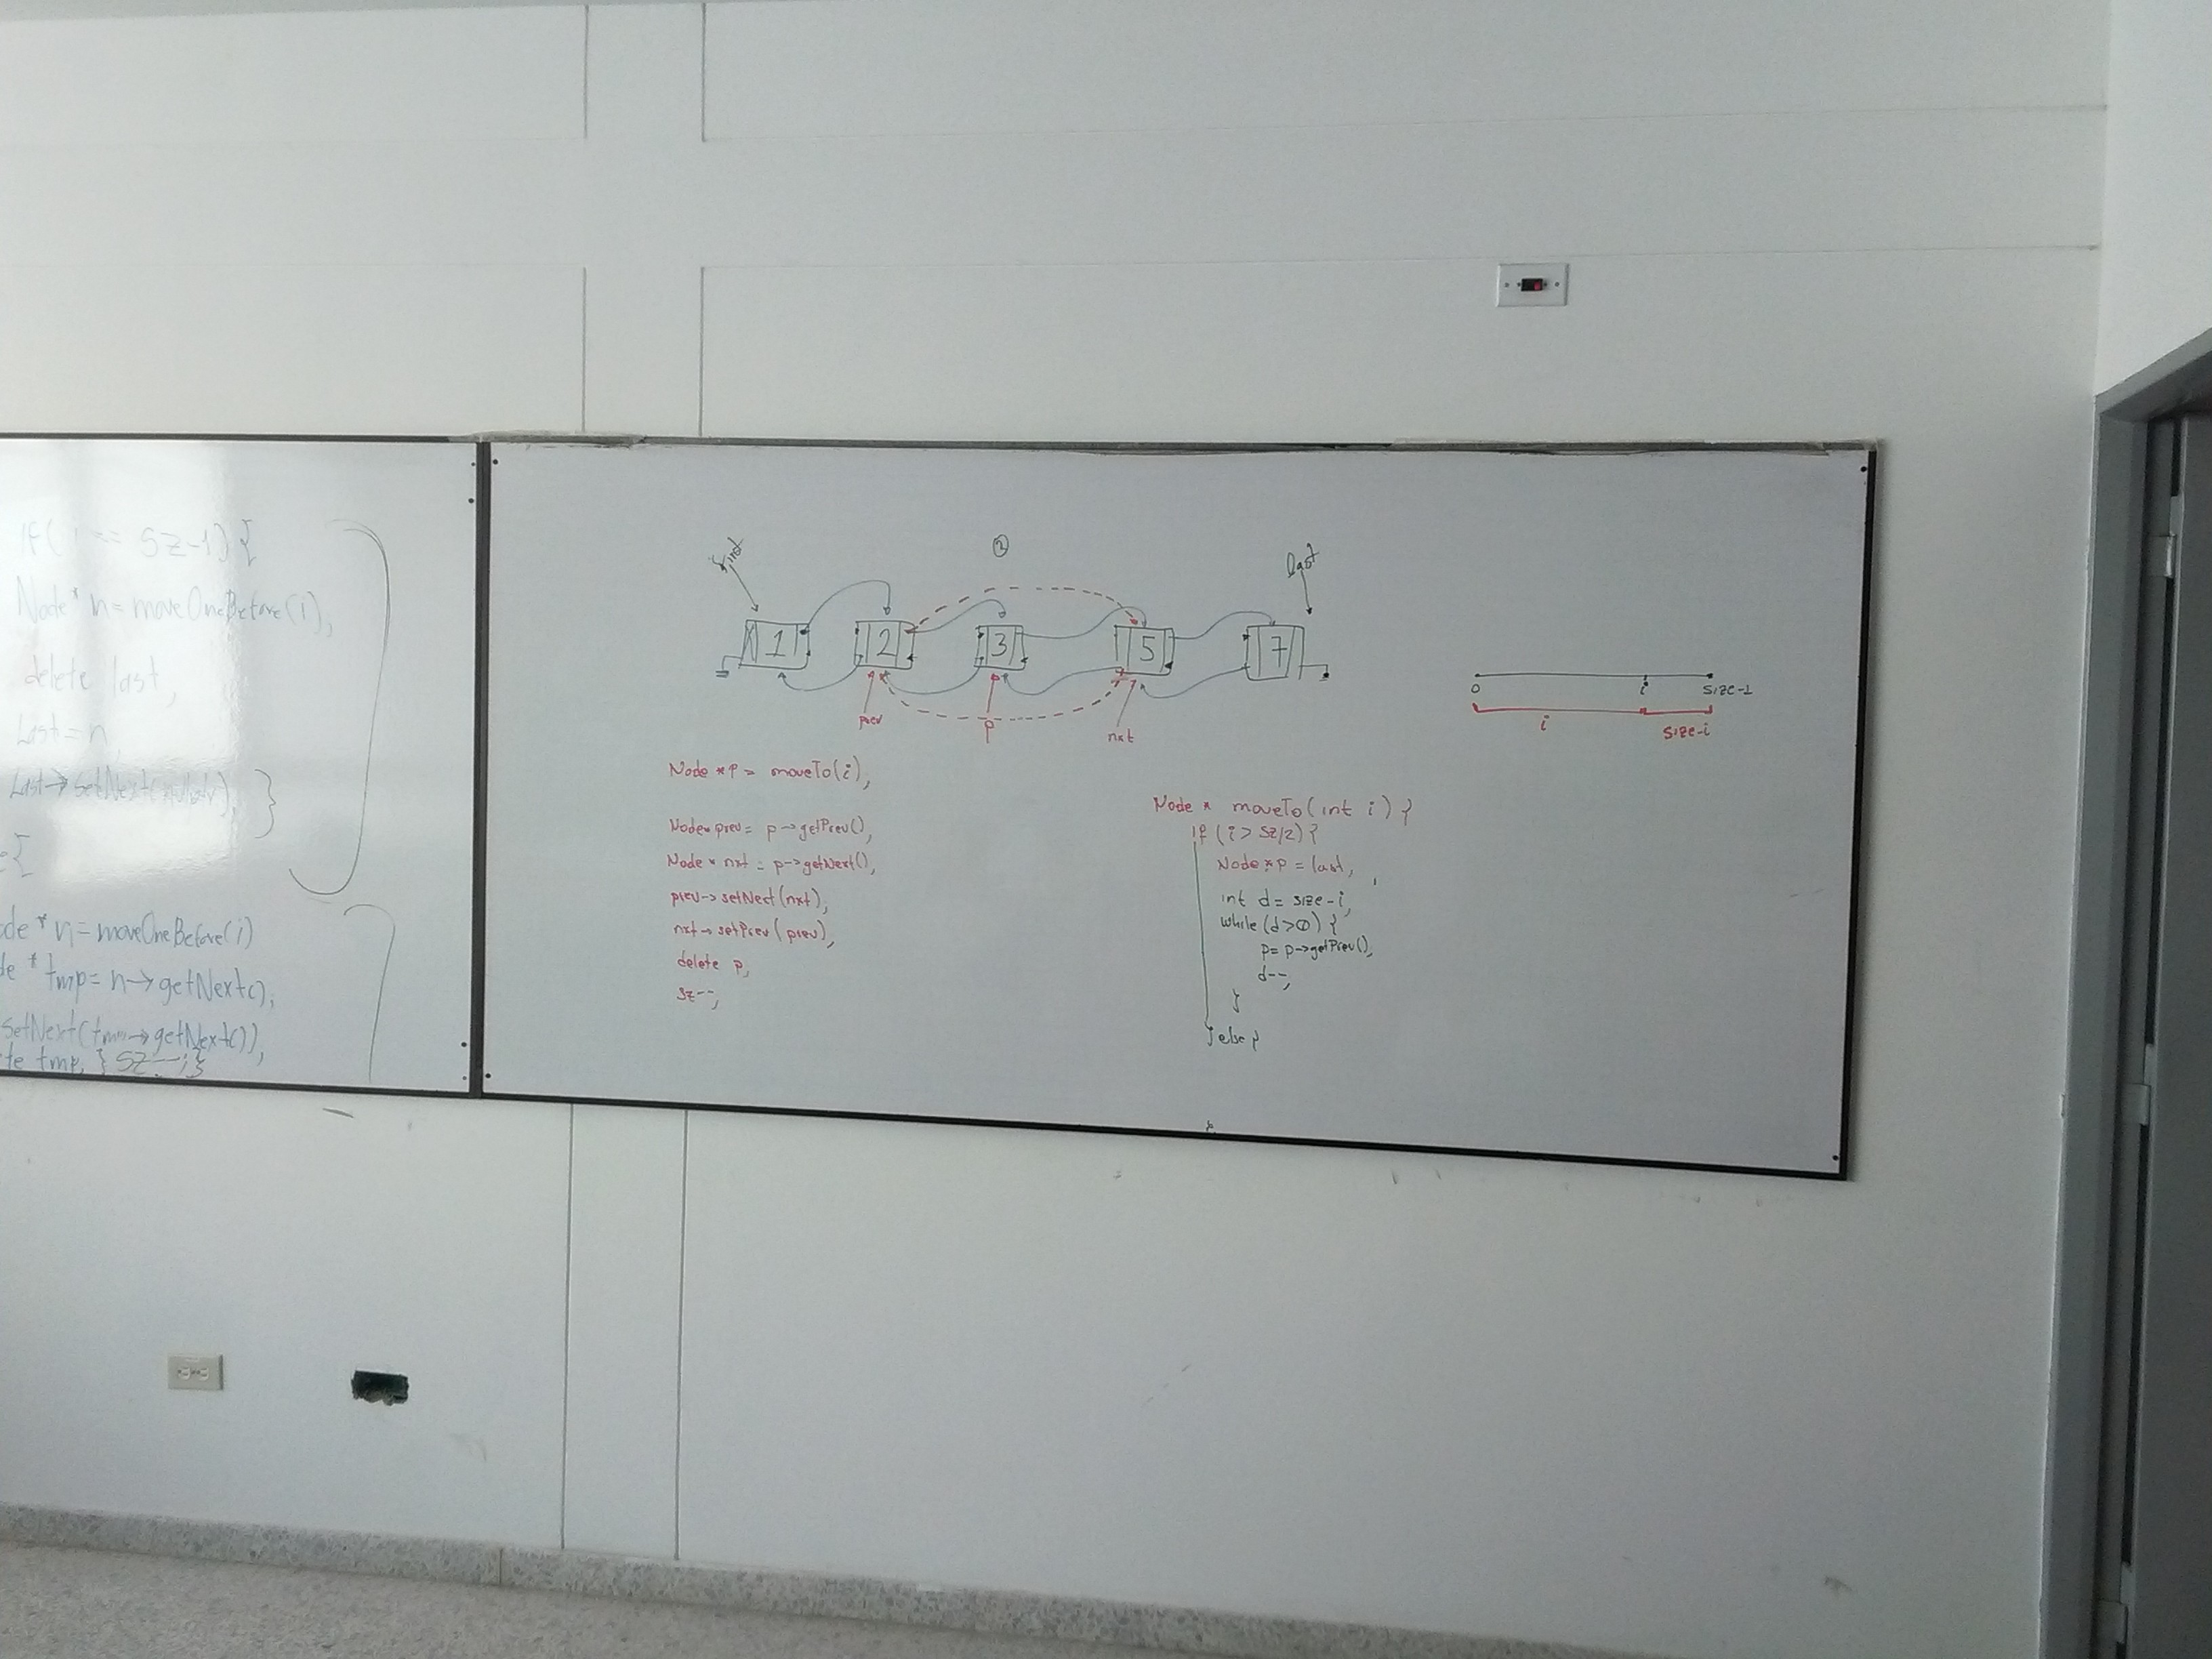 If(i == sz-1){
Node* n=moveOneBefore(i),
delete last,
Last=n,
Last→setNext(nullptr), }
e{
ode * n=moveOneBefore(i)
de * tmp= n→getNext(),
setNext(tmp→getNext()),
te tmp, } sz--;}
first
②
last
1 2 3 5 7
prev
p
nxt
0
i
size-1
i
size-i
Node *P = moveTo(i),
Node* prev= p→getPrev(),
Node * nxt = p→getNext(),
prev→setNext(nxt),
nxt→setPrev(prev),
delete p,
sz--,
Node * moveTo(int i) {
if (i > sz/2) {
Node *p = last,
int d = size-i,
while (d>0) {
p= p→getPrev(),
d--,
}
} else {